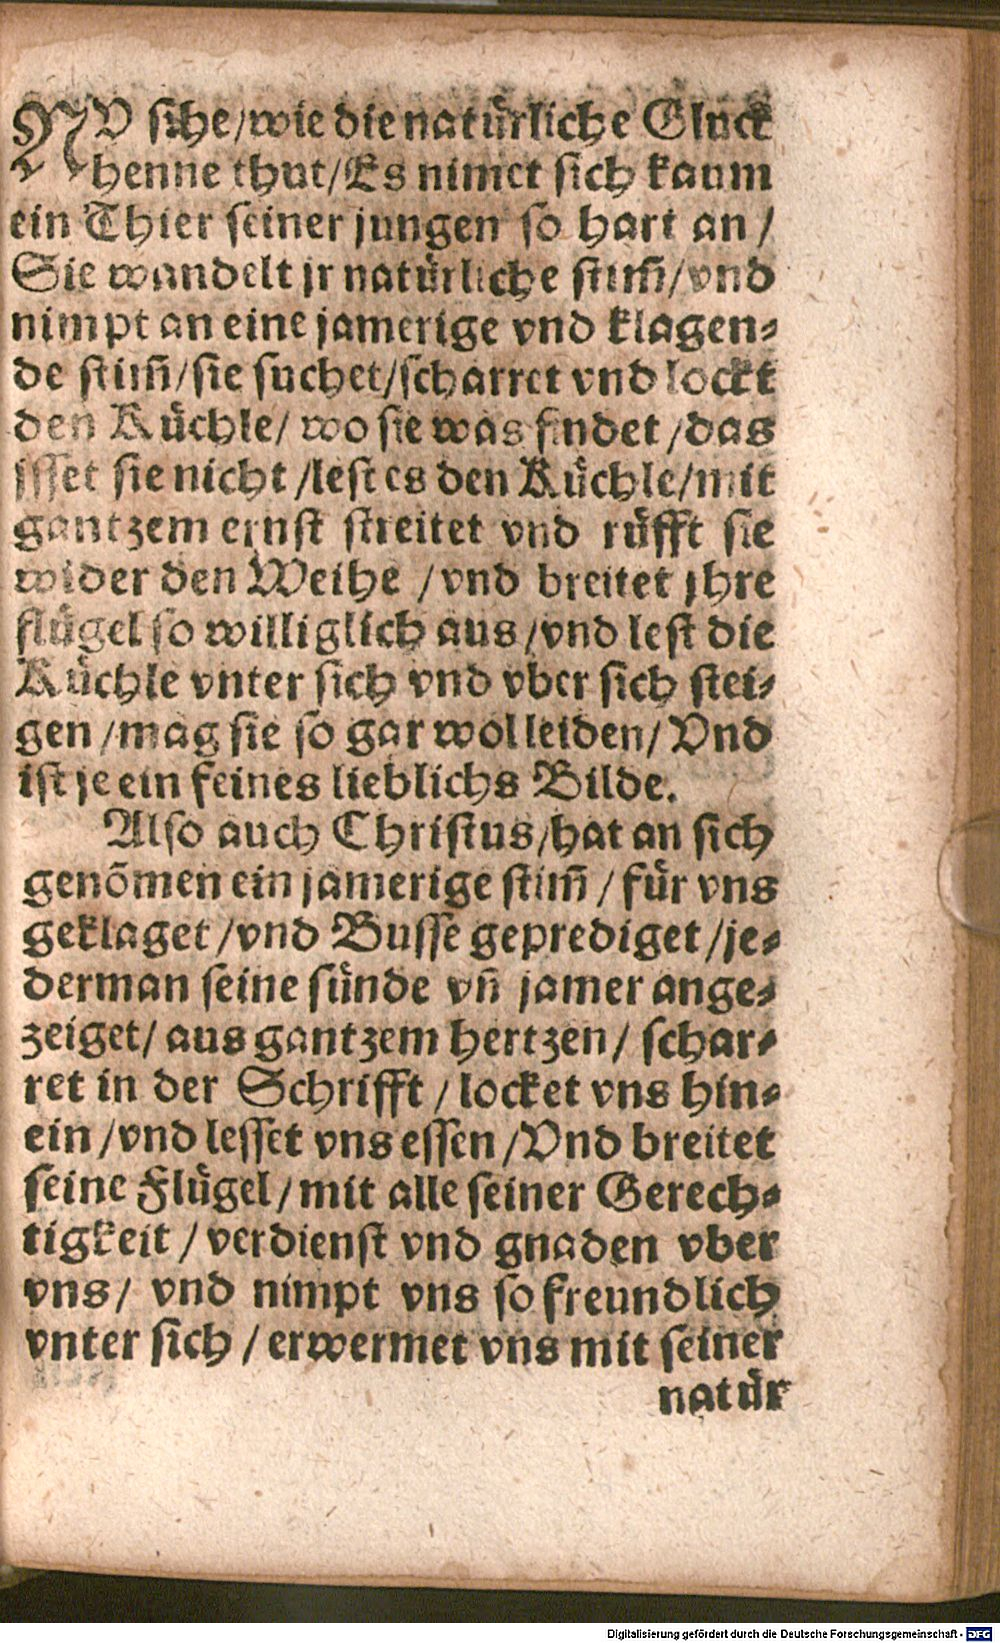 NV sihe/wie die natürliche Gluck
henne thut/Es nimet sich kaum
ein Thier seiner jungen so hart an /
Sie wandelt jr natürliche stim̃/vnd
nimpt an eine jamerige vnd klagen-
de stim̃/sie suchet/scharret vnd lockt
den Küchle/ wo sie was findet /das
isset sie nicht /lest es den Küchle/mit
gantzem ernst streitet vnd rüfft sie
wider den Weihe /vnd breitet jhre
flügel so williglich aus/vnd lest die
Küchle vnter sich vnd vber sich stei-
gen /mag sie so gar wol leiden/Vnd
ist je ein feines lieblichs Bilde.
Also auch Christus/hat an sich
genõmen ein jamerige stim̃ /für vns
geklaget /vnd Busse geprediget /je-
derman seine sünde vñ jamer ange-
zeiget/ aus gantzem hertzen/ schar-
ret in der Schrifft /locket vns hin-
ein /vnd lesset vns essen /Vnd breitet
seine Flügel/mit alle seiner Gerech-
tigkeit / verdienst vnd gnaden vber
vns/ vnd nimpt vns so freundlich
vnter sich /erwermet vns mit seiner
natür
Digitalisierung gefördert durch die Deutsche Forschungsgemeinschaft - DFG